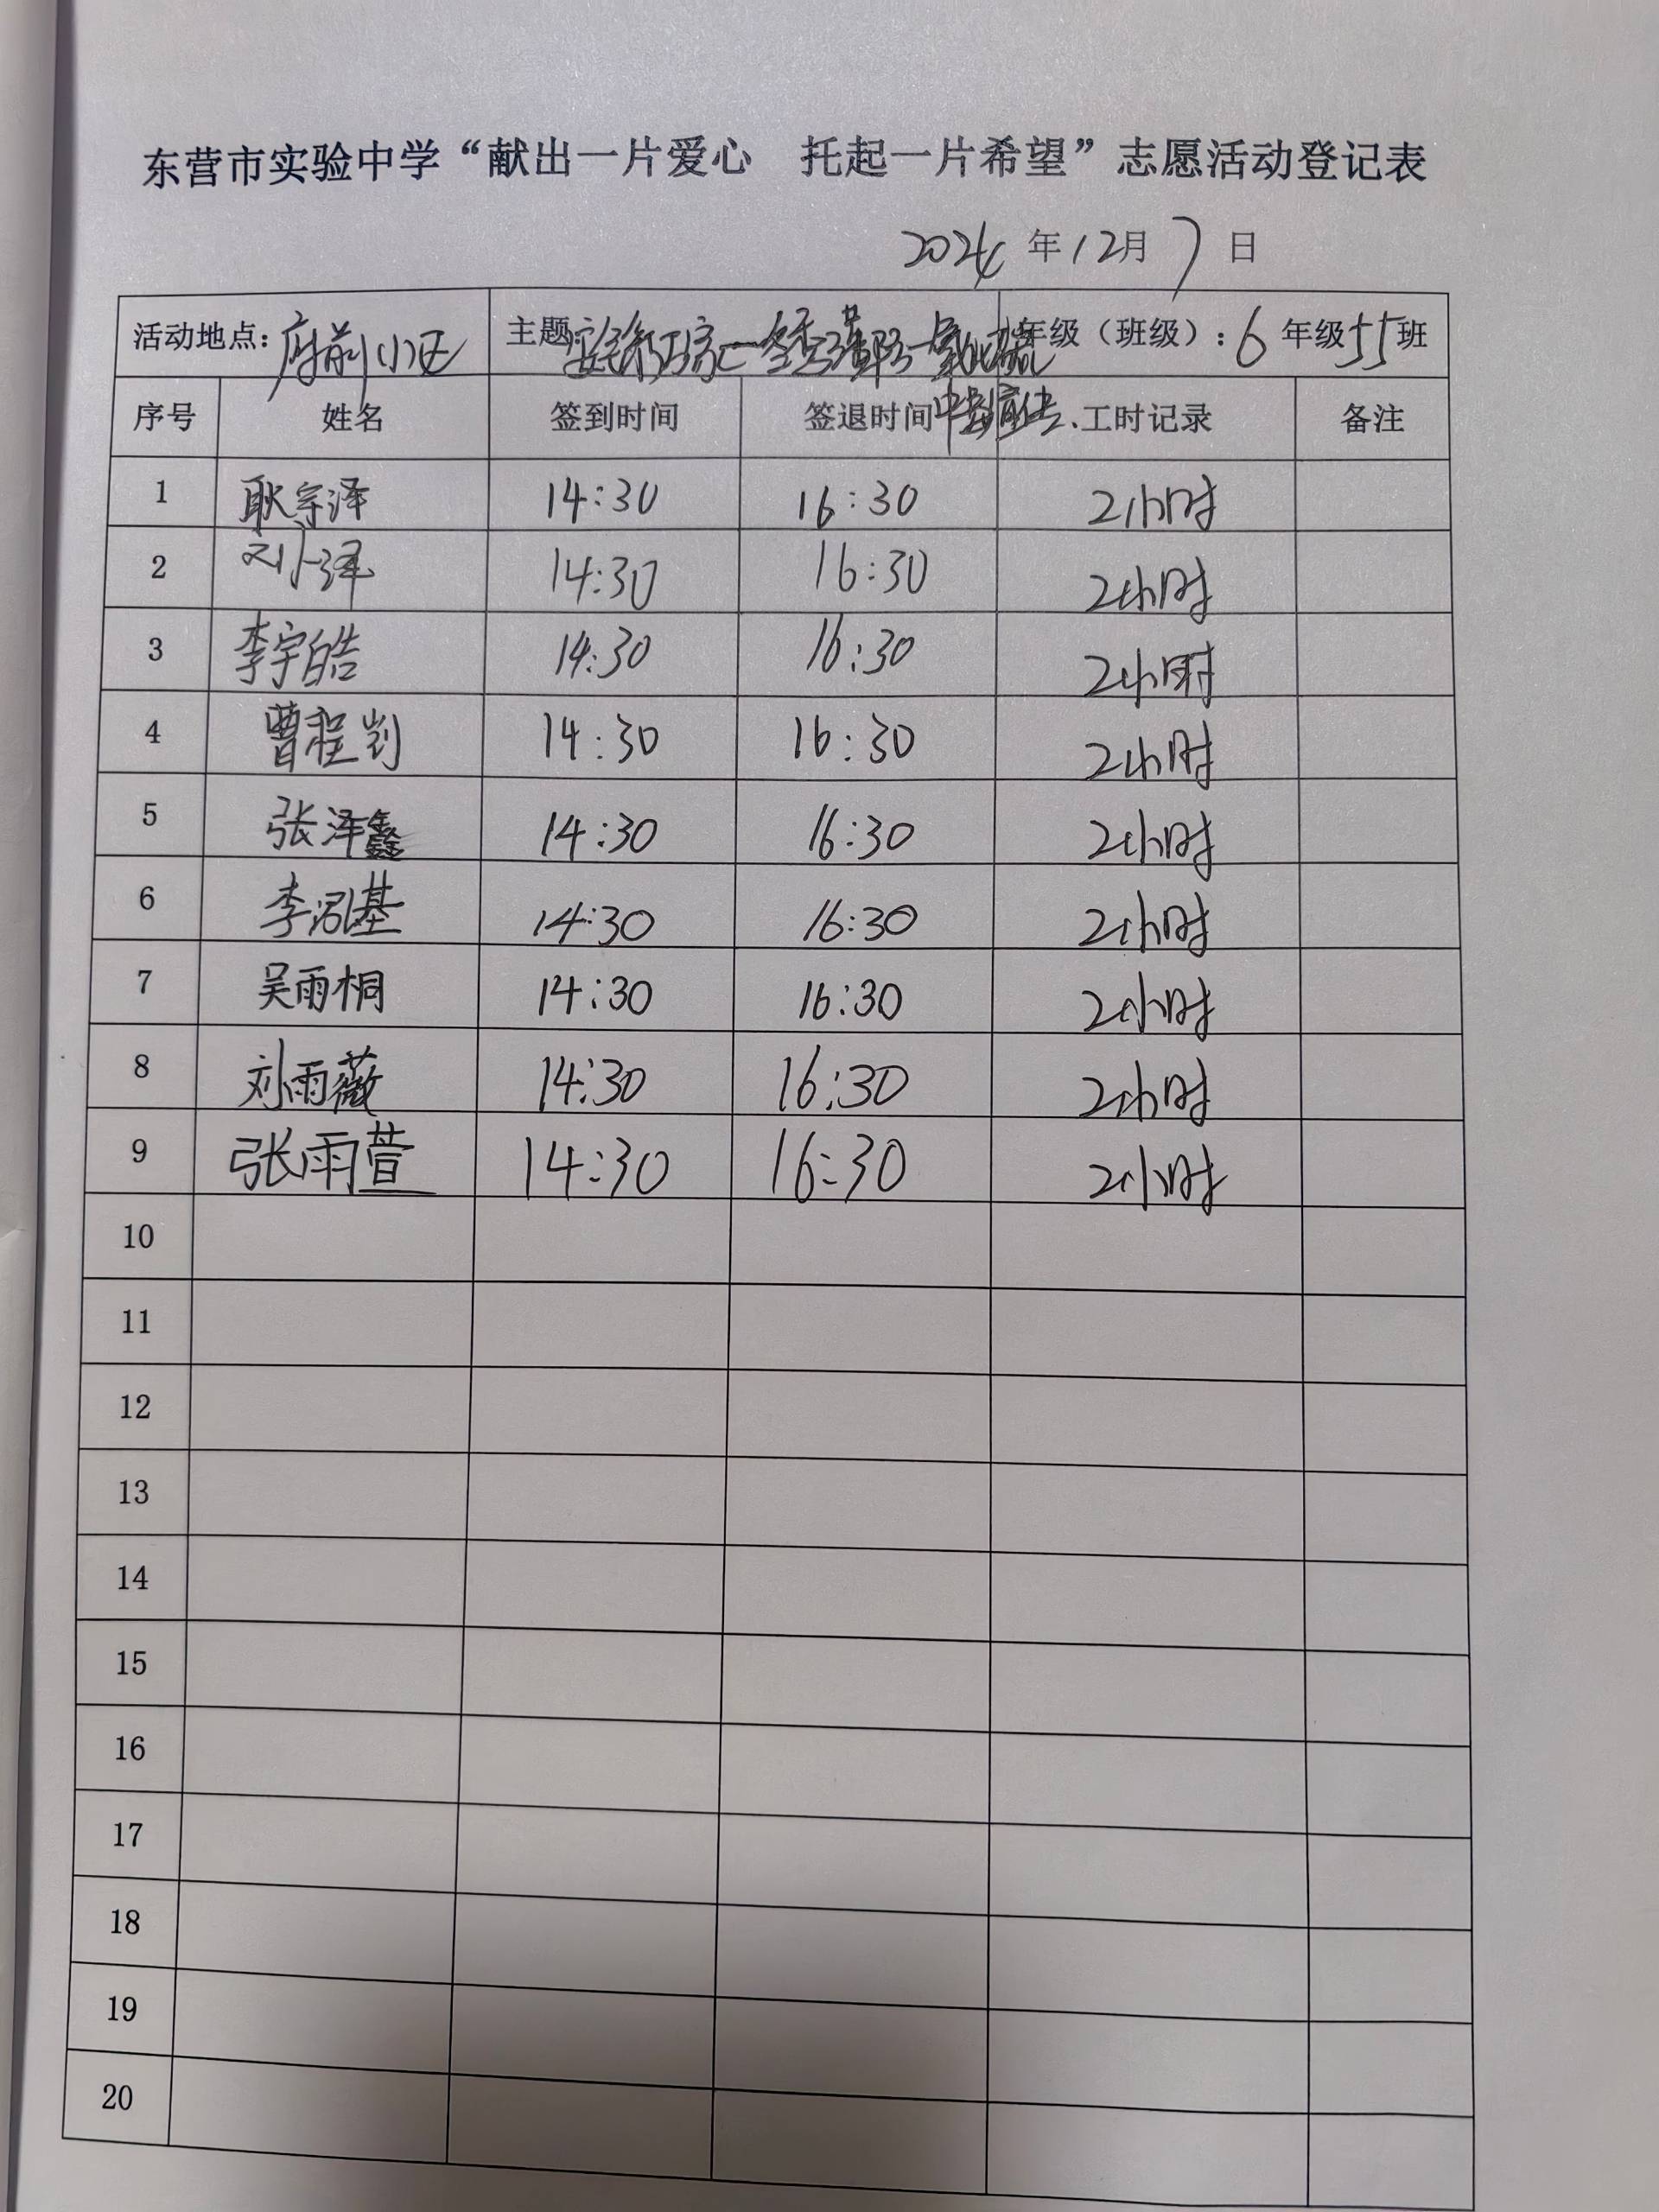 东营市实验中学“献出一片爱心 托起一片希望”志愿活动登记表
2024年12月7日
活动地点：府前小区 主题 年级（班级）：6年级55班
序号 姓名 签到时间 签退时间 工时记录 备注
1 耿宗泽 14:30 16:30 2小时
2 刘小泽 14:30 16:30 2小时
3 李宇皓 14:30 16:30 2小时
4 曹程 14:30 16:30 2小时
5 张泽鑫 14:30 16:30 2小时
6 李泓基 14:30 16:30 2小时
7 吴雨桐 14:30 16:30 2小时
8 刘雨薇 14:30 16:30 2小时
9 张雨萱 14:30 16:30 2小时
10
11
12
13
14
15
16
17
18
19
20